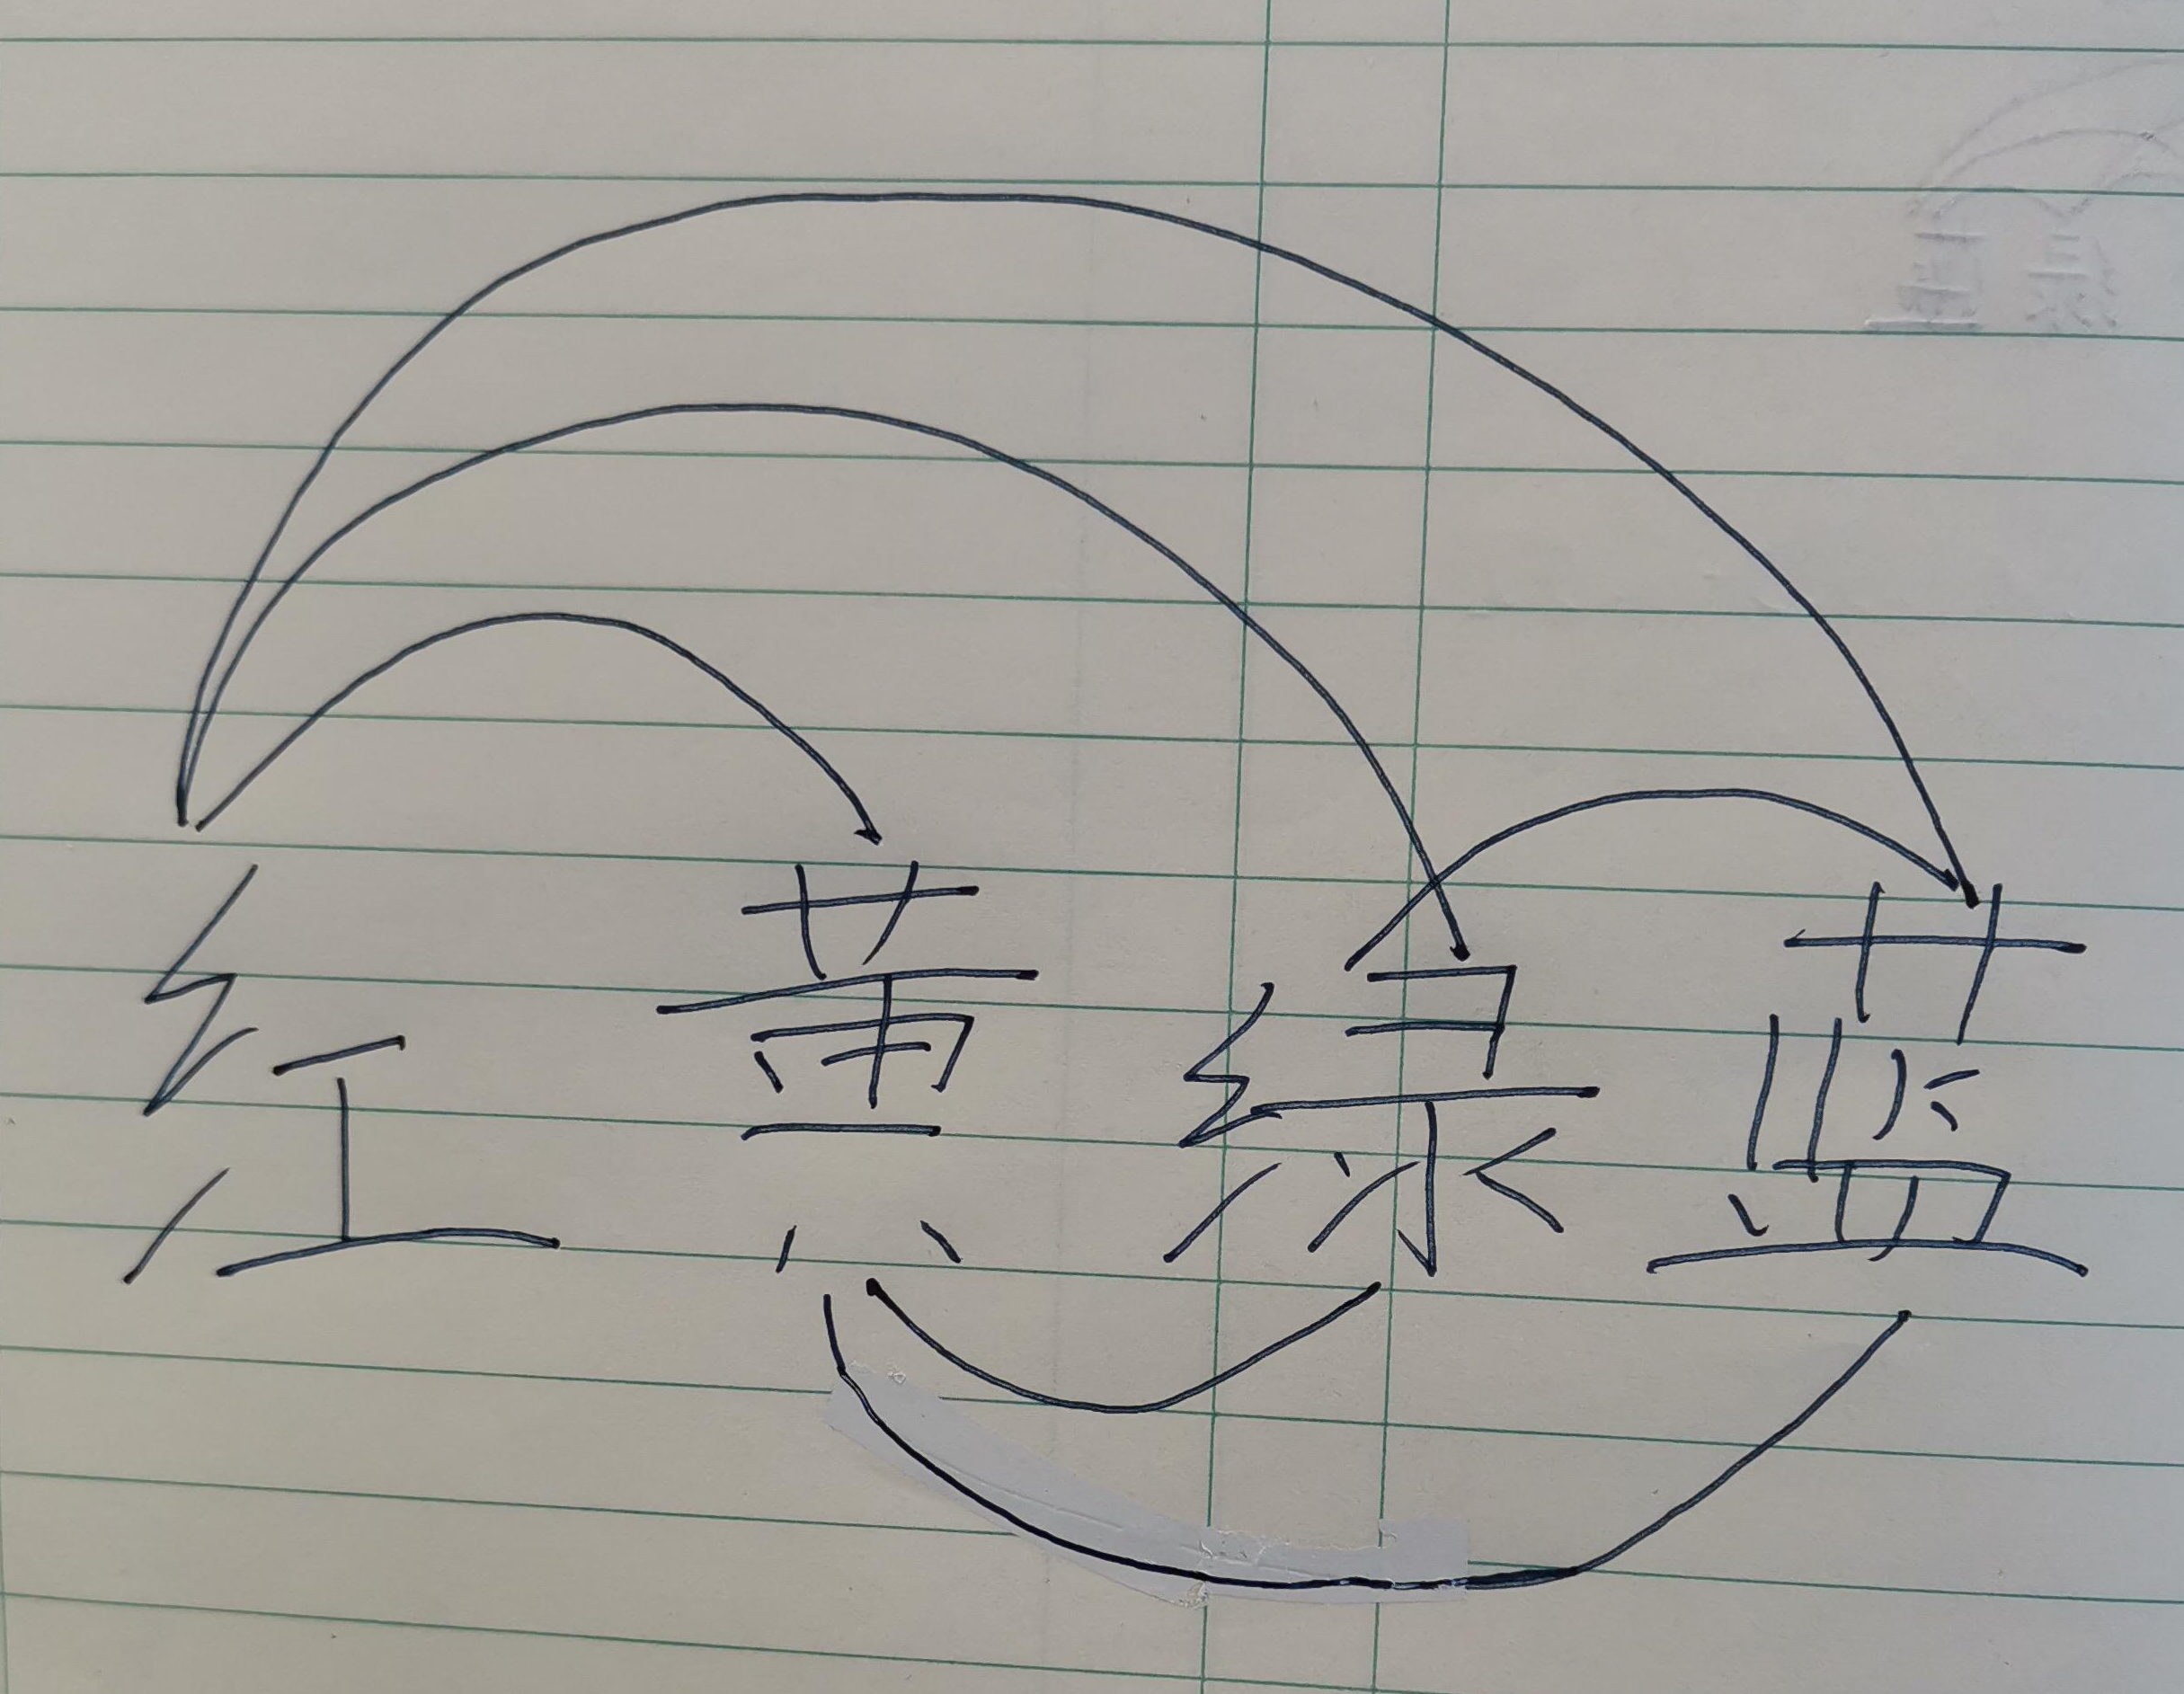 红 黄 绿 蓝